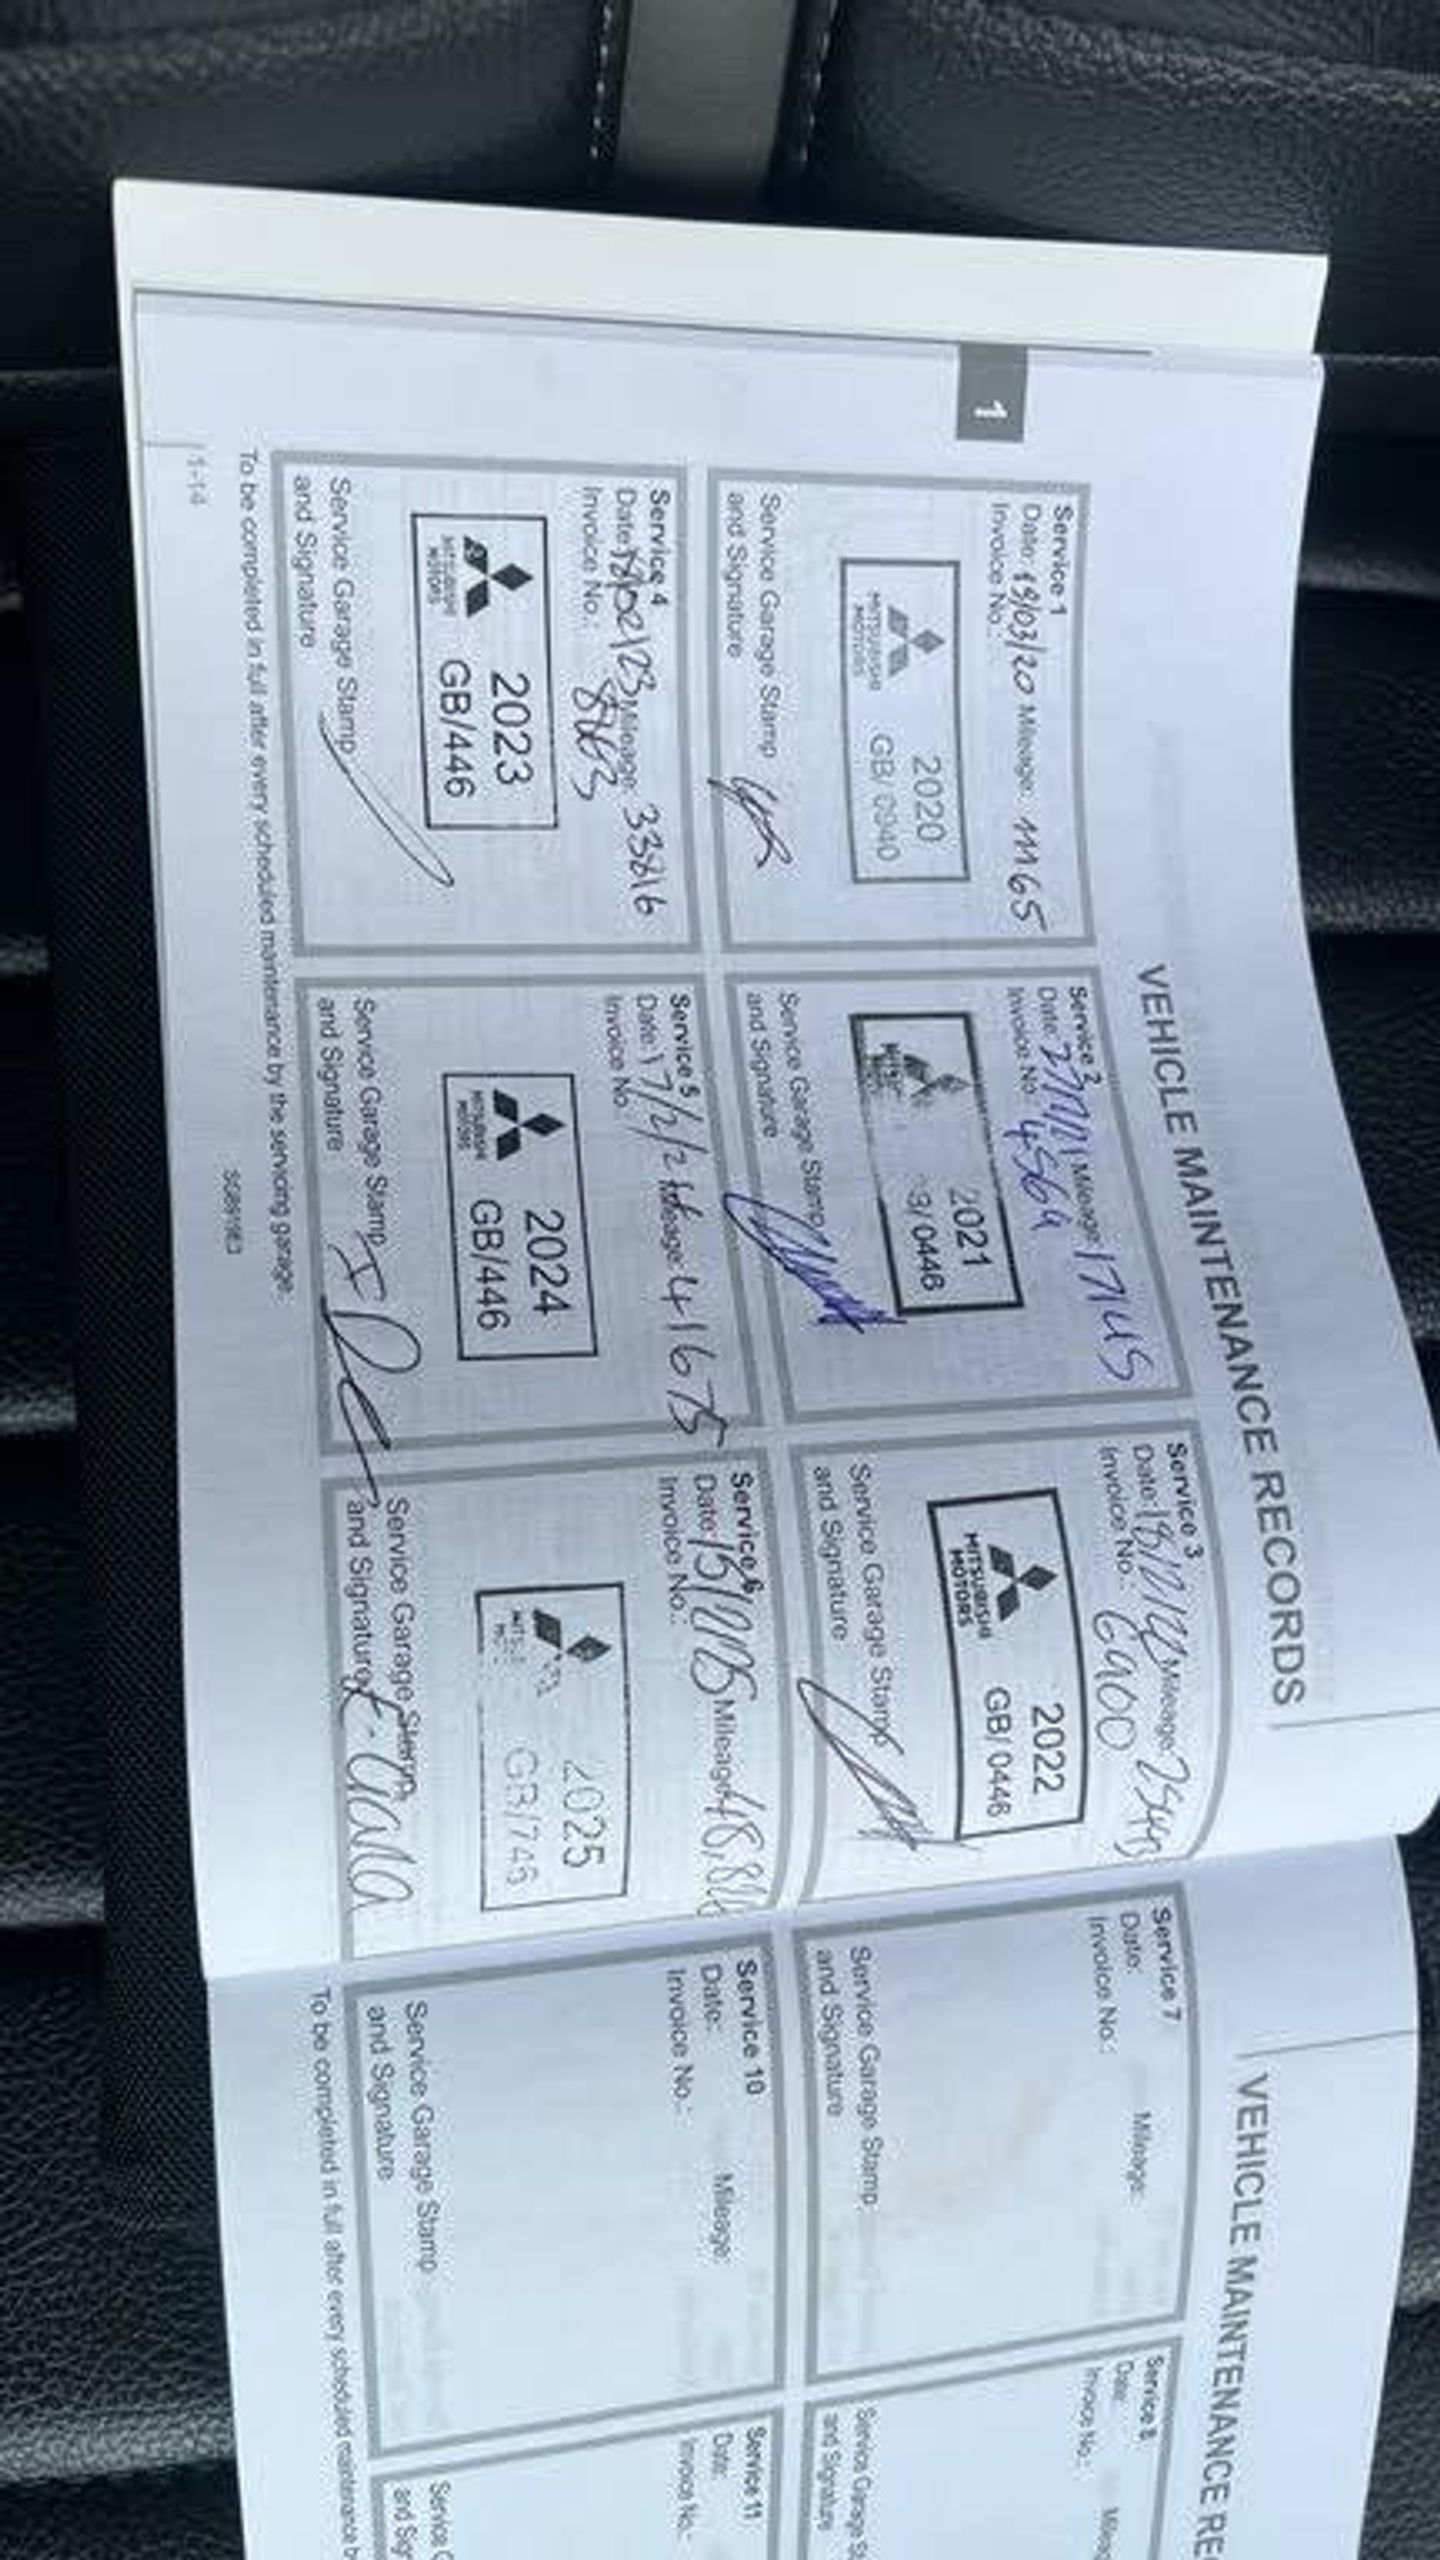 1
VEHICLE MAINTENANCE RECORDS
Service 1
Date: 19/03/20 Mileage: 11165
Invoice No.:
MITSUBISHI MOTORS
2020
GB/ 0940
Service Garage Stamp
and Signature
Service 2
Date: Mileage: 17145
Invoice No. 4569
2021
0446
Service Garage Stamp
and Signature
Service 3
Date: Mileage:
Invoice No.: 6900
MITSUBISHI MOTORS
2022
GB/ 0446
Service Garage Stamp
and Signature
Service 4
Date: Mileage: 33816
Invoice No.:
MITSUBISHI MOTORS
2023
GB/446
Service Garage Stamp
and Signature
Service 5
Date: 17/2/2 Mileage: 41675
Invoice No.
MITSUBISHI MOTORS
2024
GB/446
Service Garage Stamp
and Signature
Service 6
Date: Mileage:
Invoice No.:
2025
GB/746
Service Garage Stamp
and Signature
To be completed in full after every scheduled maintenance by the servicing garage.
1-14
VEHICLE MAINTENANCE RE
Service 7
Date: Mileage:
Invoice No.:
Service Garage Stamp
and Signature
Service 8
Date:
Invoice No.:
Service Garage
and Signature
Service 10
Date: Mileage:
Invoice No.:
Service Garage Stamp
and Signature
Service 11
Date:
Invoice No.:
To be completed in full after every scheduled maintenance